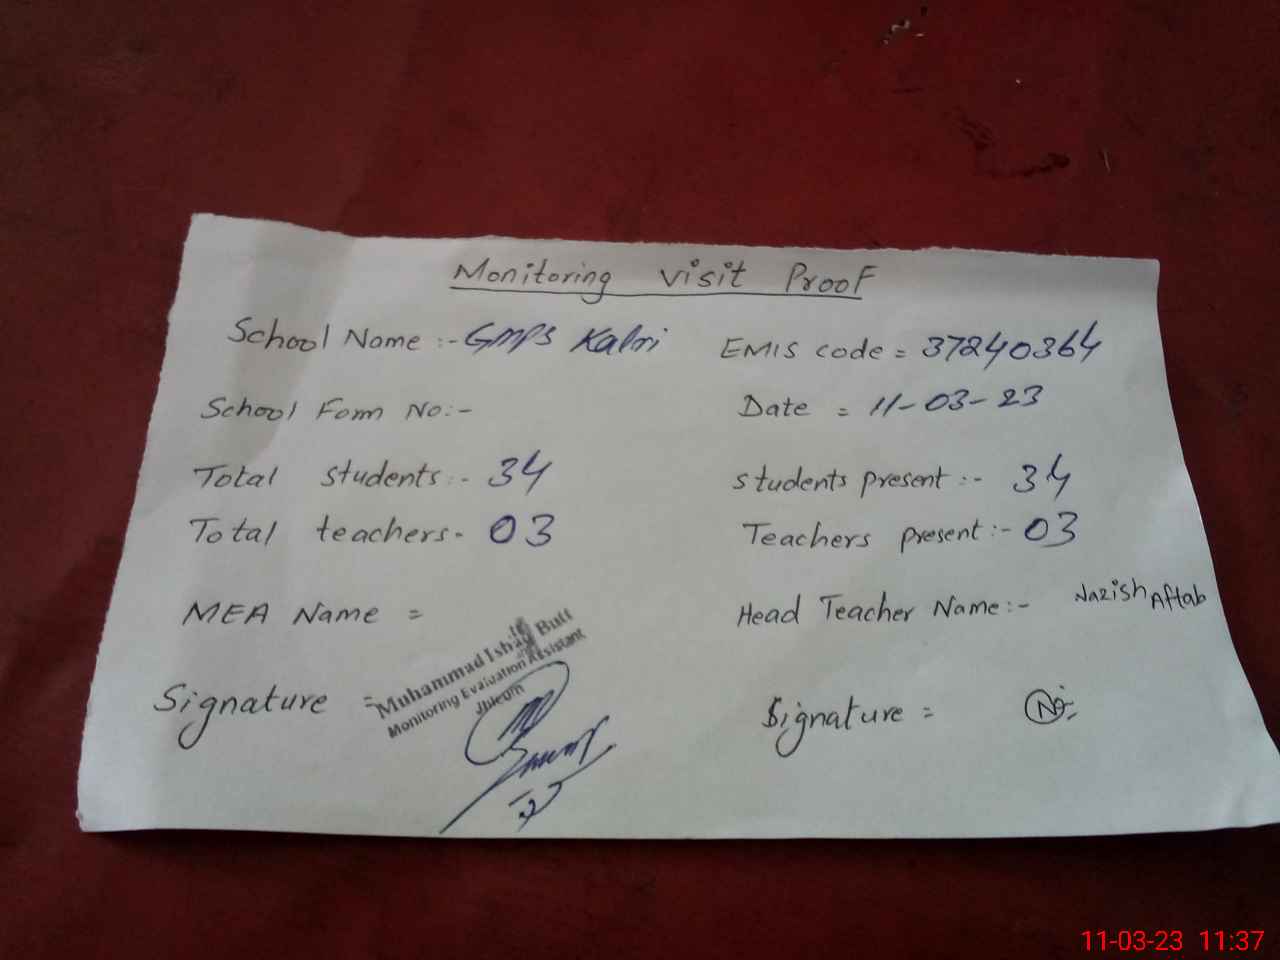 Monitoring visit Proof
School Name :- GMPS Kalri EMIS code = 37240364
School Form No:- Date = 11-03-23
Total students:- 34 students present :- 34
Total teachers- 03 Teachers present:- 03
MEA Name = Head Teacher Name:- Nazish Aftab
Muhammad Ishaq Butt
Monitoring Evaluation Assistant
Jhleum
Signature = Signature =
11-03-23 11:37